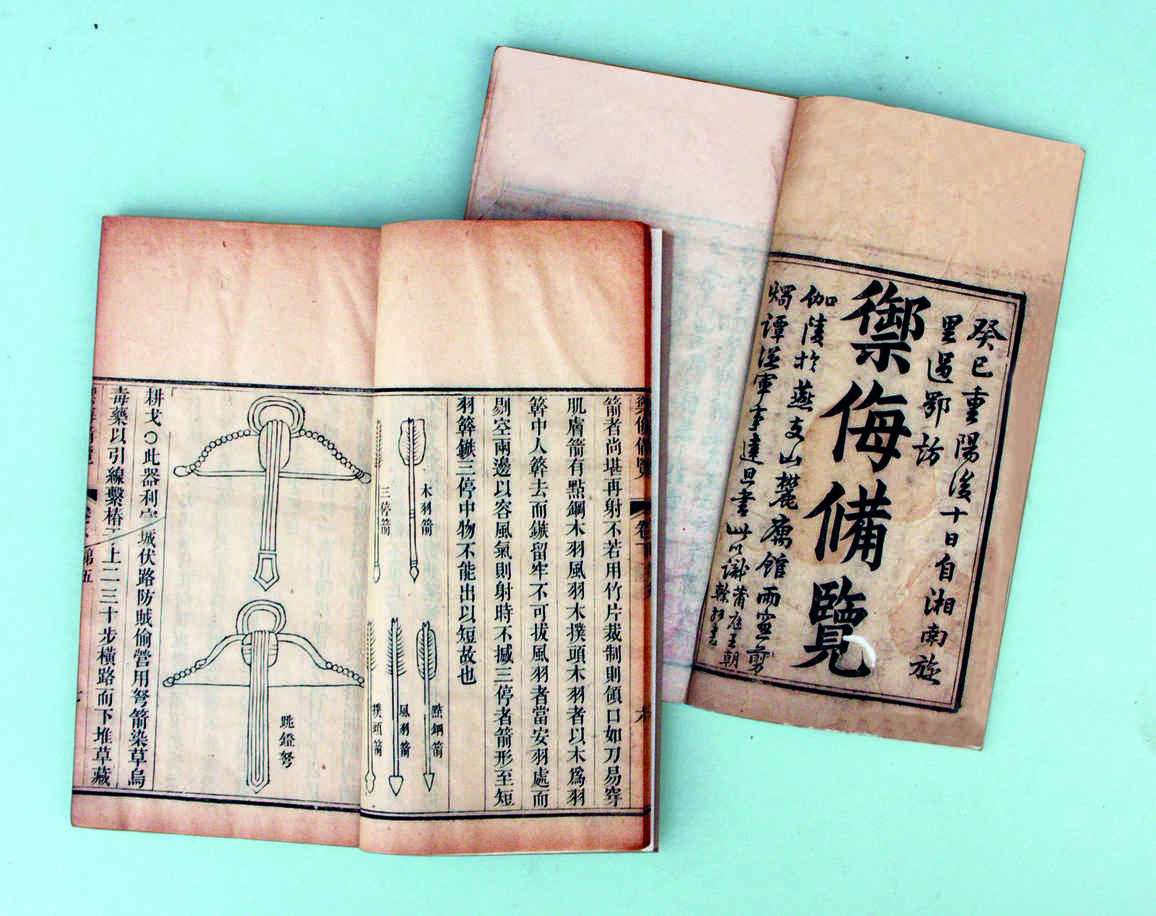 癸巳重陽後十日自湘南旋
里過鄂訪
禦侮備覽
伽陵於燕支山麓廡館雨窗剪
燭譚從軍事達旦書此以
箭者尚堪再射不若用竹片裁制則領口如刀易穿
肌膚箭有點鋼木羽風羽木撲頭木羽者以木爲羽
簳中人簳去而鏃留牢不可拔風羽者當安羽處而
剔空兩邊以容風氣則射時不撼三停者箭形至短
羽簳鏃三停中物不能出以短故也
木羽箭
三停箭
點鋼箭
風羽箭
撲頭箭
跳鐙弩
耕戈〇此器利守城伏路防賊偷營用弩箭染草烏
毒藥以引線繫樁於上二三十步橫路而下堆草藏